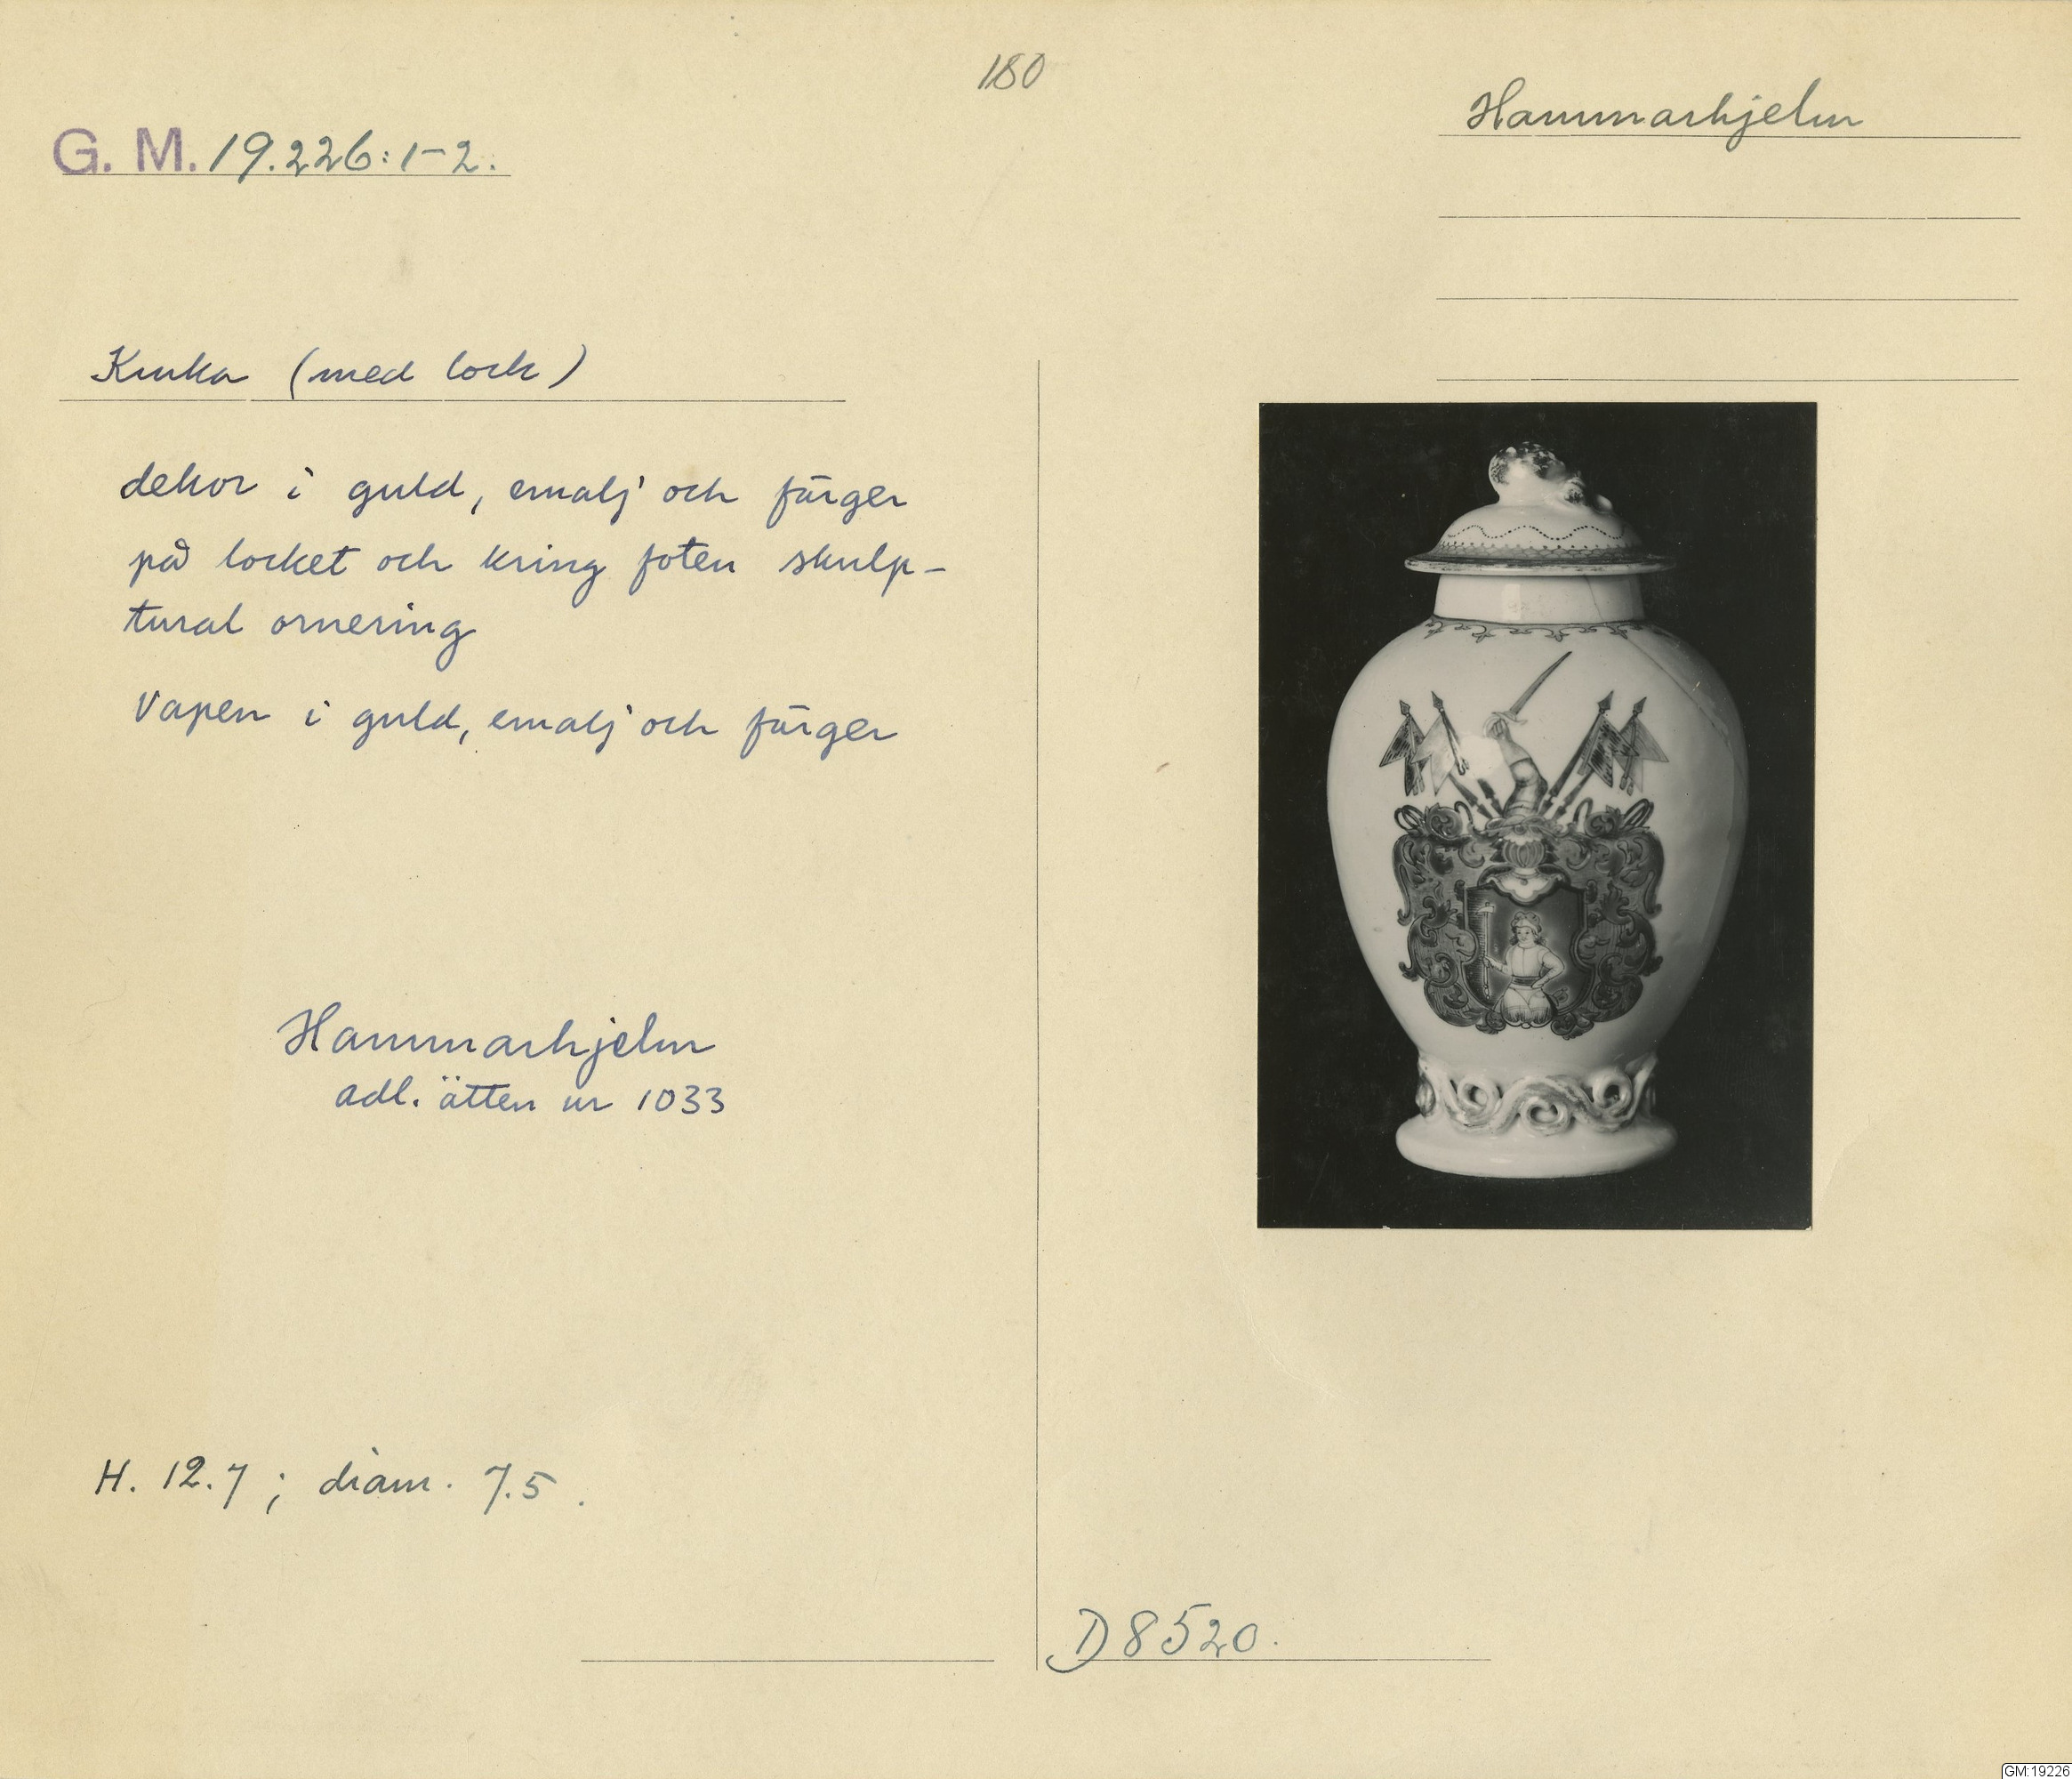 180
Hammarhjelm
G. M. 19.226:1-2.
Kruka (med lock)
dekor i guld, emalj och färger
på locket och kring foten skulp-
tural ornering
Vapen i guld, emalj och färger
Hammarhjelm
adl. ätten nr 1033
H. 12.7; diam. 7.5.
D 8520.
GM:19226